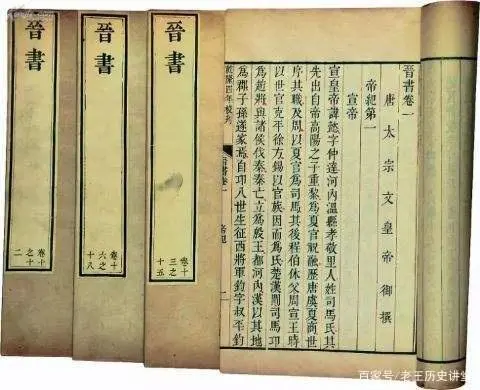 晉書卷一
唐太宗文皇帝御撰
帝紀第一
宣帝
宣皇帝諱懿字仲達河內溫縣孝敬里人姓司馬氏其
先出自帝高陽之子重黎為夏官祝融歷唐虞夏商世
序其職及周以夏官為司馬其後程伯休父周宣王時
以世官克平徐方錫以官族因而為氏楚漢間司馬卬
為趙將與諸侯伐秦秦亡立為殷王都河內漢以其地
為郡子孫遂家焉自卬八世生征西將軍鈞字叔平鈞
乾隆四年校刊
晉書卷一
帝紀
晉書
卷十
三之
十五
晉書
卷十
六之
十八
晉書
卷十
之十
二
百家号/老王历史讲堂